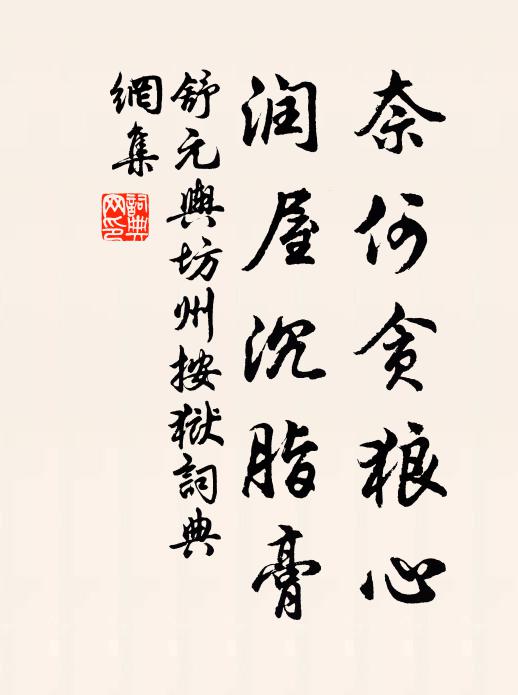 奈何贪狼心
润屋沉脂膏
舒元輿坊州按獄詞典
網集
詞典網印